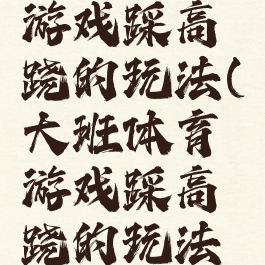 游戏踩高
跷的玩法(
大班体育
游戏踩高
跷的玩法